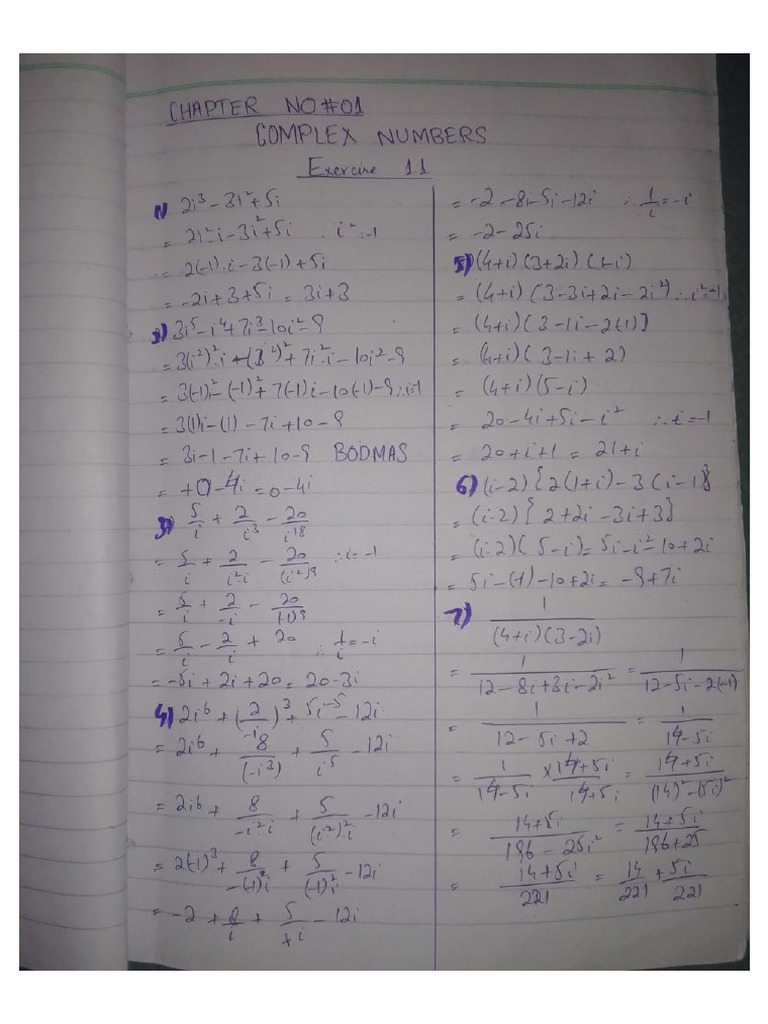 CHAPTER NO#01
COMPLEX NUMBERS
Exercise 1.1
1) 2i³ - 3i² + 5i
= 2i²·i - 3i² + 5i ∴ i² = -1
= 2(-1)·i - 3(-1) + 5i
= -2i + 3 + 5i = 3i + 3
2) 3i⁵ - i⁴ + 7i³ - 10i² - 9
= 3(i²)²·i - (i²)² + 7i²·i - 10i² - 9
= 3(-1)²i - (-1)² + 7(-1)i - 10(-1) - 9 ∴ i² = -1
= 3(1)i - (1) - 7i + 10 - 9
= 3i - 1 - 7i + 10 - 9 BODMAS
= +0 - 4i = 0 - 4i
3) 5/i + 2/i³ - 20/i¹⁸
= 5/i + 2/i²·i - 20/(i²)⁹ ∴ i² = -1
= 5/i + 2/-i - 20/(-1)⁹
= 5/i - 2/i + 20 ∴ 1/i = -i
= -5i + 2i + 20 = 20 - 3i
4) 2i⁶ + (2/-i)³ + 5i⁻⁵ - 12i
= 2i⁶ + 8/(-i³) + 5/i⁵ - 12i
= 2i⁶ + 8/-i²i + 5/(i²)²i - 12i
= 2(-1)³ + 8/-(-1)i + 5/(-1)²i - 12i
= -2 + 8/i + 5/+i - 12i
= -2 - 8i - 5i - 12i ∴ 1/i = -i
= -2 - 25i
5) (4+i)(3+2i)(1-i)
= (4+i)(3 - 3i + 2i - 2i²) ∴ i² = -1
= (4+i)(3 - 1i - 2(-1)]
= (4+i)(3 - 1i + 2)
= (4+i)(5 - i)
= 20 - 4i + 5i - i² ∴ i² = -1
= 20 + i + 1 = 21 + i
6) (i-2){2(1+i) - 3(i-1)}
= (i-2){2 + 2i - 3i + 3}
= (i-2)(5-i) = 5i - i² - 10 + 2i
= 5i - (-1) - 10 + 2i = -9 + 7i
7) 1/(4+i)(3-2i)
= 1/12 - 8i + 3i - 2i² = 1/12 - 5i - 2(-1)
= 1/12 - 5i + 2 = 1/14 - 5i
= 1/14-5i × 14+5i/14+5i = 14+5i/(14)² - (5i)²
= 14+5i/196 - 25i² = 14+5i/196+25
= 14+5i/221 = 14/221 + 5i/221